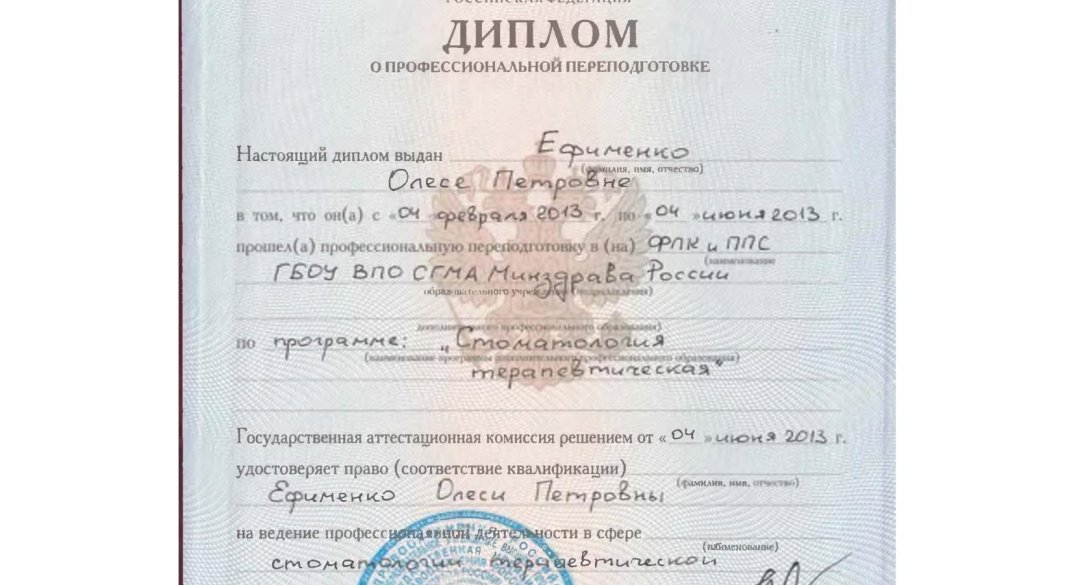 РОССИЙСКАЯ ФЕДЕРАЦИЯ
ДИПЛОМ
О ПРОФЕССИОНАЛЬНОЙ ПЕРЕПОДГОТОВКЕ
Настоящий диплом выдан Ефименко
(фамилия, имя, отчество)
Олесе Петровне
в том, что он(а) с «04 » февраля 2013 г. по «04 » июня 2013 г.
прошел(а) профессиональную переподготовку в (на) ФПК и ППС
(наименование
ГБОУ ВПО СГМА Минздрава России
образовательного учреждения (подразделения)
дополнительного профессионального образования)
по программе: „Стоматология
(наименование программы дополнительного профессионального образования)
терапевтическая"
Государственная аттестационная комиссия решением от «04 » июня 2013 г.
удостоверяет право (соответствие квалификации)
(фамилия, имя, отчество)
Ефименко Олеси Петровны
на ведение профессиональной деятельности в сфере
(наименование)
стоматологии терапевтической